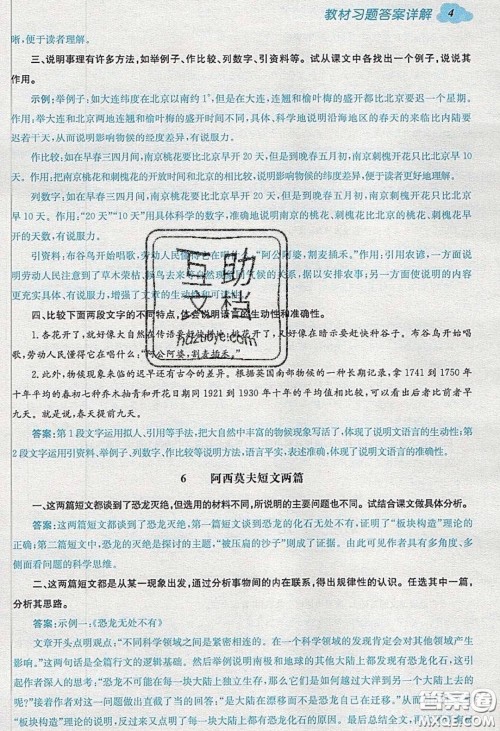 教材习题答案详解 4
晰,便于读者理解。
三、说明事理有许多方法,如举例子、作比较、列数字、引资料等。试从课文中各找出一个例子,说说其
作用。
示例:举例子:如大连纬度在北京以南约1°,但是在大连,连翘和榆叶梅的盛开都比北京要迟一个星期。
作用:用大连连翘和榆叶梅的盛开都比北京要迟的例子,具体、科学地说明沿海地区的春天的来临比内陆要
迟若干天,从而说明影响物候的经度差异,有说服力。
作比较:如在早春三四月间,南京桃花要比北京早开20天,但是到晚春五月初,南京刺槐开花只比北京早10
天。作用:把南京桃花和刺槐花的开放时间和北京的相比较,说明影响物候的纬度差异,便于读者更好地理解。
列数字:如在早春三四月间,南京桃花要比北京早开20天,但是到晚春五月初,南京刺槐开花只比北京
早10天。作用:“20天”“10天”用具体科学的数字,准确地说明了南京的桃花、刺槐花比北京的桃花、刺槐花
早开的天数,有说服力。
引资料:布谷鸟开始唱歌,劳动人民懂得它在唱什么:“阿公阿婆,割麦插禾。”作用:引用农谚,一方面说明
劳动人民注意到了草木荣枯、候鸟去来等自然现象同气候的关系,据以安排农事;另一方面,使说明的内容
更充实具体、有说服力,增强了文章的生动性和可读性。
四、比较下面两段文字的不同特点,体会说明语言的生动性和准确性。
1.杏花开了,就好像大自然在传语要赶快耕地;桃花开了,又好像在暗示要赶快种谷子。布谷鸟开始唱
歌,劳动人民懂得它在唱什么:“阿公阿婆,割麦插禾。”
2.此外,物候现象来临的迟早还有古今的差异。根据英国南部物候的一种长期记录,拿1741到1750年
十年平均的春初七种乔木抽青和开花日期同1921到1930年十年的平均值相比较,可以看出后者比前者早
九天。就是说,春天提前九天。
答案:第1段文字运用拟人、引用等手法,把大自然中丰富的物候现象写活了,体现了说明文语言的生动性;
第2段文字运用引资料、举例子、列数字、作比较等说明方法,体现了说明文语言的准确性。
6 阿西莫夫短文两篇
一、这两篇短文都谈到了恐龙灭绝,但选用的材料不同,所说明的主要问题也不同。试结合课文做具体分析。
答案:这两篇短文都谈到了恐龙灭绝。第一篇短文谈到恐龙的化石无处不有,证明了“板块构造”理论的
正确;第二篇短文中,恐龙的灭绝是探讨的主题,“被压扁的沙子”则成了证据。由此可见作者具有多角度、多
侧面看问题的科学思维。
二、这两篇短文都是从某一现象出发,通过分析事物间的内在联系,得出规律性的认识。任选其中一篇,
分析其思路。
答案:示例一:《恐龙无处不有》
文章开头点明观点:“不同科学领域之间是紧密相连的。在一个科学领域的发现肯定会对其他领域产生
影响。”这两句话是全篇行文的逻辑基础。然后举例说明南极和地球的其他大陆上都发现有恐龙化石,这引
起作者深入的思考:不同大陆上都有恐龙化石,恐龙是怎样越过大洋到另一个大陆上去的?不同大陆都存在
吗?接着作者对问题做出直截了当的回答:“是大陆在漂移而不是恐龙自己在迁移。”恐龙化石的发现支持了
“板块构造”理论的说明,反过来又点明了每一块大陆上都有恐龙化石的原因。最后总结全文,再